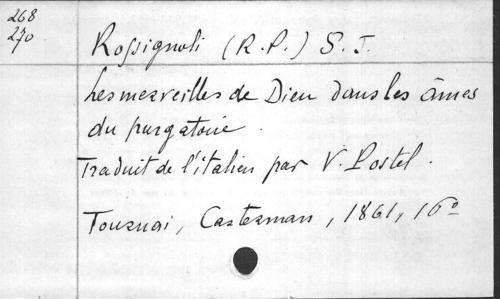 268
270
Rossignoli (R.P.) S.J.
Les merveilles de Dieu dans les âmes
du purgatoire.
Traduit de l'italien par V. Postel.
Tournai, Casterman, 1861, 16º